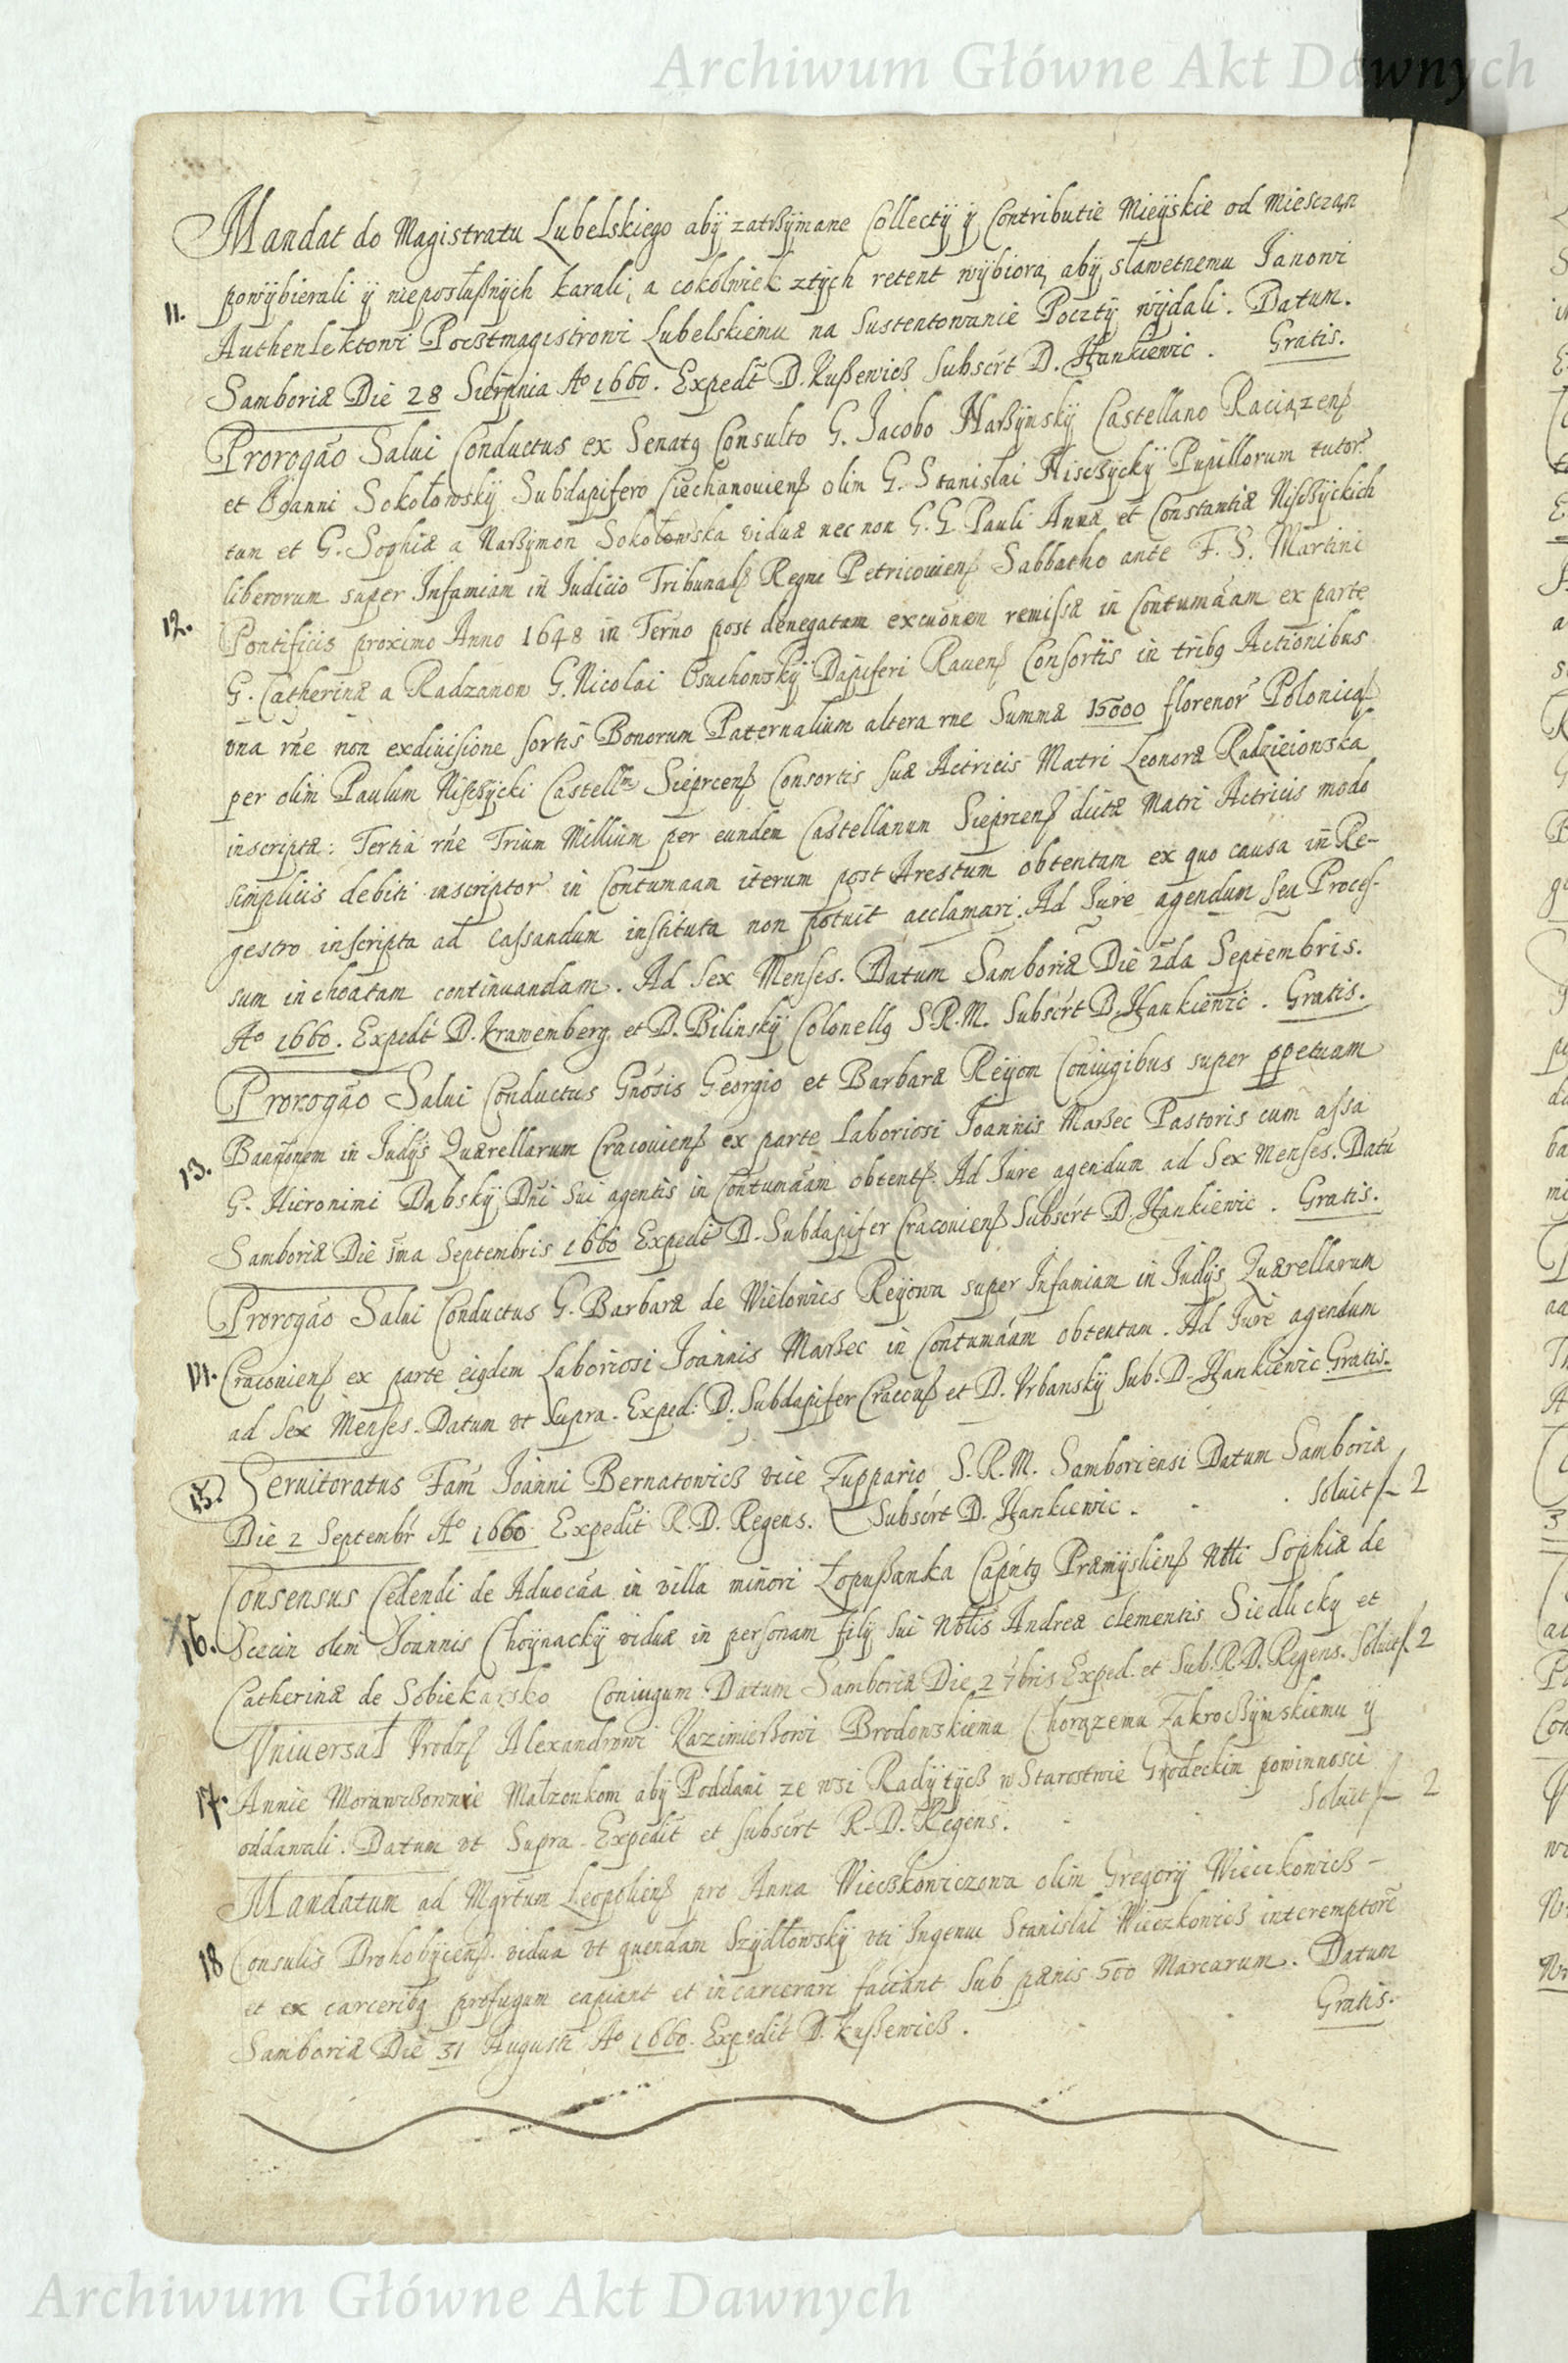 Archiwum Główne Akt Dawnych
Mandat do Magistratu Lubelskiego abÿ zatrßÿmane Collectÿ ÿ Contributie Mieÿskie od Miesczan
powÿbierali ÿ nieposłußnÿch karali, a cokolwiek z tÿch retent wÿbiorą abÿ sławetnemu Janowi
11. Authenlektowi Pocstmagistrowi Lubelskiemu na Sustentowanie Pocztÿ wÿdali. Datum.
Samboriæ Die 28 Sierpnia Aº 1660. Expedt D. Kußewicß Subscrt D. Hankiewic. Gratis.
Prorogão Salui Conductus ex Senatq Consulto G. Jacobo Narßÿmskÿ Castellano Raciązenß
et Joanni Sokołowskÿ Subdapifero Ciechanouienß olim G. Stanislai Nisczÿckÿ Pupillorum tutor
tam et G. Sophiæ a Narßÿmon Sokołowska viduæ nec non G. G. Pauli Annæ et Constantiæ Nisczÿckich
liberorum super Infamiam in Judicio Tribunalß Regni Petricouienß Sabbatho ante F. S. Martini
12. Pontificis proximo Anno 1648 in Terno post denegatam excuonem remissæ in Contumaam ex parte
G. Catherinæ a Radzanow G. Nicolai Osuchowskÿ Dapiferi Rauenß Consortis in tribq Actionibus
vna rne non exdiuisione sortis Bonorum Paternalium altera rne Summæ 15000 florenor Polonical
per olim Paulum Nisczÿcki Castellm Sieprcenß Consortis suæ Actricis Matri Leonoræ Radzieiowska
inscriptæ: Tertia rne Trium Millium per eundem Castellanum Sieprcenß dictæ Matri Actricis modo
simplicis debiti inscriptor in Contumaam iterum post Arestum obtentam ex quo causa in Re-
gestro inscripta ad cassandum instituta non potuit acclamari. Ad Jure agendum seu Proces-
sum inchoatam continuandam. Ad Sex Menses. Datum Samboriæ Die 2da Septembris.
Aº 1660. Expedt D. Krawemberg et D. Bilinskÿ Colonellq S. R. M. Subscrt D. Hankiewic. Gratis.
Prorogão Salui Conductus Gnosis Georgio et Barbaræ Reÿom Coniugibus super ppetuam
Bannonem in Judÿs Quærellarum Cracouienß ex parte Laboriosi Joannis Marßec Pastoris cum assa
13. G. Hieronimi Dąbskÿ Dni sui agentis in Contumaam obtentß. Ad Jure agendum ad Sex Menses. Datu
Samboriæ Die 1ma Septembris 1660 Expedit D. Subdapifer Cracouienß Subscrt D. Hankiewic. Gratis.
Prorogão Salui Conductus G. Barbaræ de Wielowics Reÿowa super Infamiam in Judÿs Quærellarum
14. Cracouienß ex parte eiqdem Laboriosi Joannis Marßec in Contumaam obtentam. Ad Jure agendum
ad Sex Menses. Datum vt supra. Exped: D. Subdapifer Craccuß et D. Vrbanskÿ Sub. D. Hankiewic Gratis.
15. Seruitoratus Fam Joanni Bernatowicß vice Zuppario S. R. M. Samboriensi Datum Samboriæ
Die 2 Septembr Aº 1660 Expedit R. D. Regens. Subscrt D. Hankiewic. Soluit f 2
Consensus Cedendi de Aduocaa in villa minori Łopußanka Capntq Præmÿslienß Nbli Sophiæ de
16. Scecin olim Joannis Choÿnackÿ viduæ in personam filÿ sui Nblis Andreæ Clementis Siedlicky et
Catherinæ de Sobiekarsko Coniugum Datum Samboriæ Die 2 7bris Exped. et Sub. R. D. Regens. Soluit f. 2
Vniuersał Vrodzß Alexandrowi Kazimierßowi Brodowskiemu Chorązemu Zakroczÿmskiemu ÿ
17. Annie Morawczownie Małzonkom abÿ Poddani ze wsi Radÿtÿcß w Starostwie Grodeckim powinnosci
oddawali. Datum vt Supra. Expedit et subscrt R. D. Regens. Soluit f 2
Mandatum ad Mgrtum Leopolienß pro Anna Wiecßkowiczowa olim Gregorÿ Wieczkowicß -
18 Consulis Drohobÿcenß. vidua vt quendam Szÿdłowskÿ vti Ingenui Stanislai Wieczkowicß interemptore
et ex carceribq profugum capiant et incarcerari faciant sub pænis 500 Marcarum. Datum
Samboriæ Die 31 Augusti Aº 1660. Expedit D. Kußewicß. Gratis.
Archiwum Główne Akt Dawnych